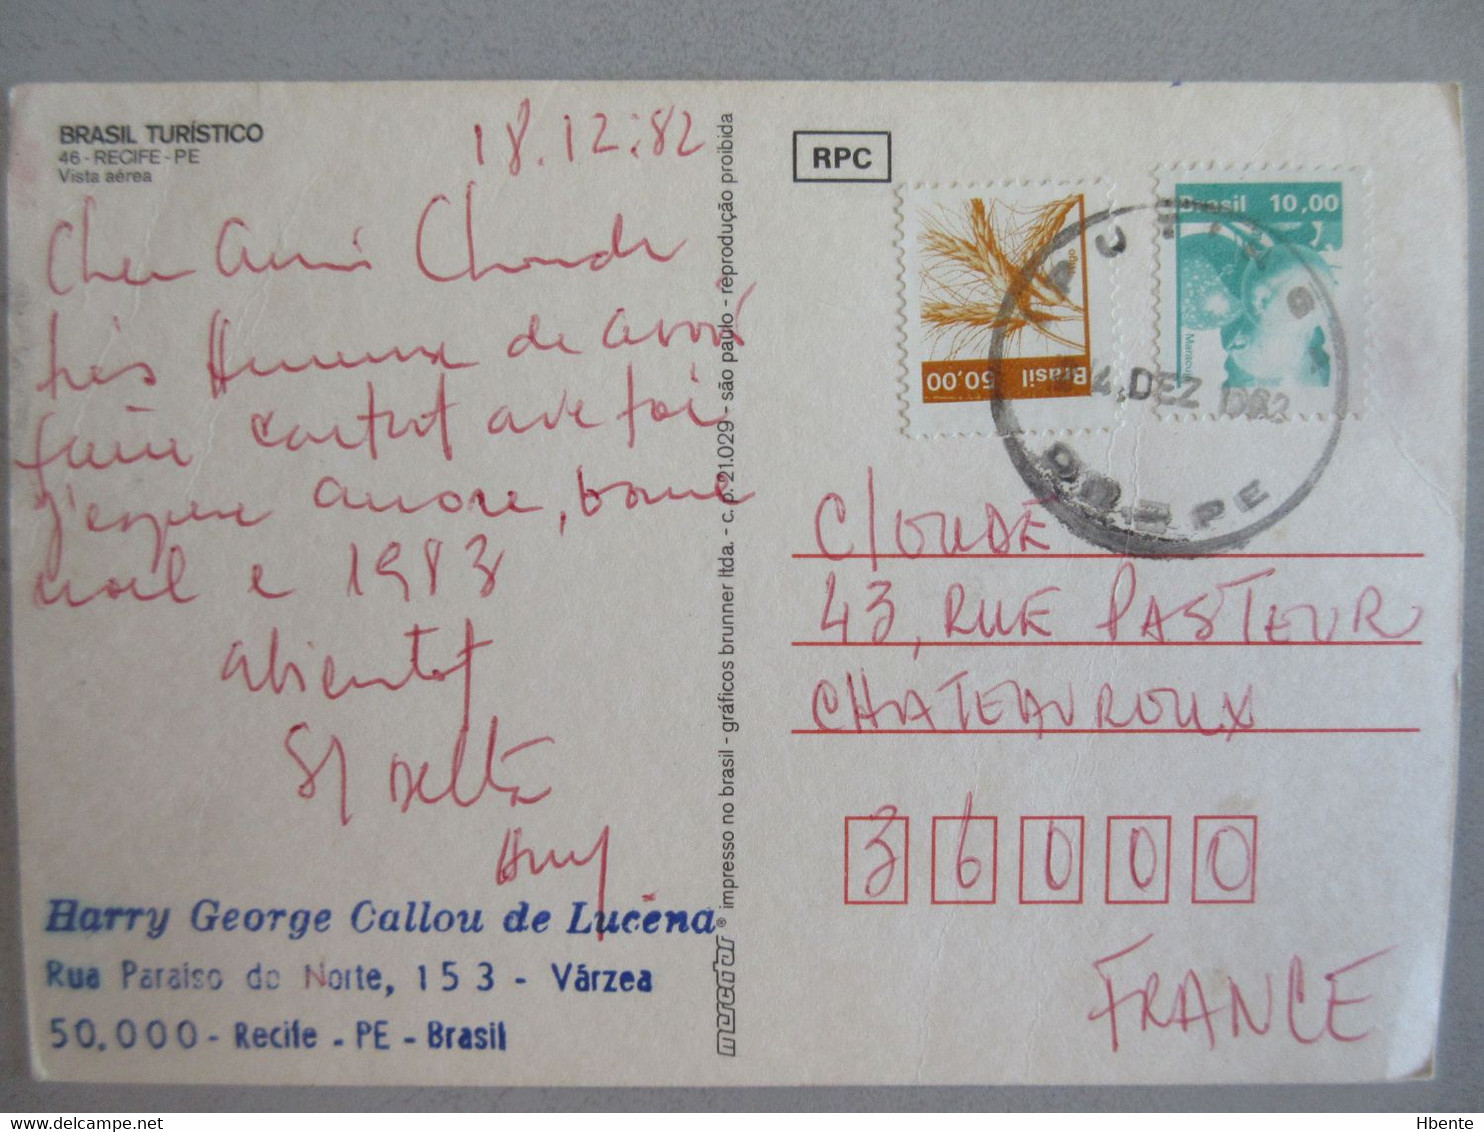 BRASIL TURÍSTICO
46 - RECIFE - PE
Vista aérea
18.12.82
Cher Ami Claude
très Heureux de avoir
faire contact ave toi
J'espere encore, bonne
noel e 1983
abientot
Harry
Harry George Callou de Lucena
Rua Paraiso do Norte, 153 - Várzea
50.000 - Recife - PE - Brasil
mercator ® impresso no brasil - gráficos brunner ltda. - c. p. 21.029 - são paulo - reprodução proibida
RPC
Brasil 50,00
Brasil 10,00
Maracujá
DEZ 1982
PE
CLOUDE
43, RUE PASTEUR
CHATEAUROUX
36000
FRANCE
Hbente